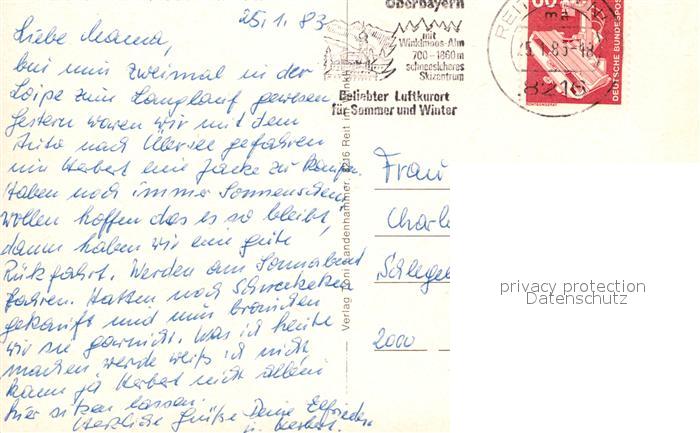 25.1.83
Liebe Mama,
bin nun zweimal in der
Loipe zum Langlauf gewesen
Gestern waren wir mit dem
Auto nach Übersee gefahren
um Herbert eine Jacke zu kaufen.
Haben noch immer Sonnenschein
wollen hoffen das es so bleibt,
dann haben wir eine gute
Rückfahrt. Werden am Sonnabend
fahren. Hatten noch Schneeketten
gekauft und nun brauchen
wir sie garnicht. Was ich heute
machen werde weiß ich nicht,
kann ja Herbert nicht allein
hier sitzen lassen.
Herzliche Grüße Deine Elfriede
u. Herbert.
Oberbayern
mit
Winklmoos-Alm
700-1860m
schneesicheres
Skizentrum
Beliebter Luftkurort
für Sommer und Winter
REIT IM
8216
60
DEUTSCHE BUNDESPOST
Verlag Toni Brandenhammer, 8216 Reit im Winkl
Frau
Charl
Schlegel
2000
privacy protection
Datenschutz